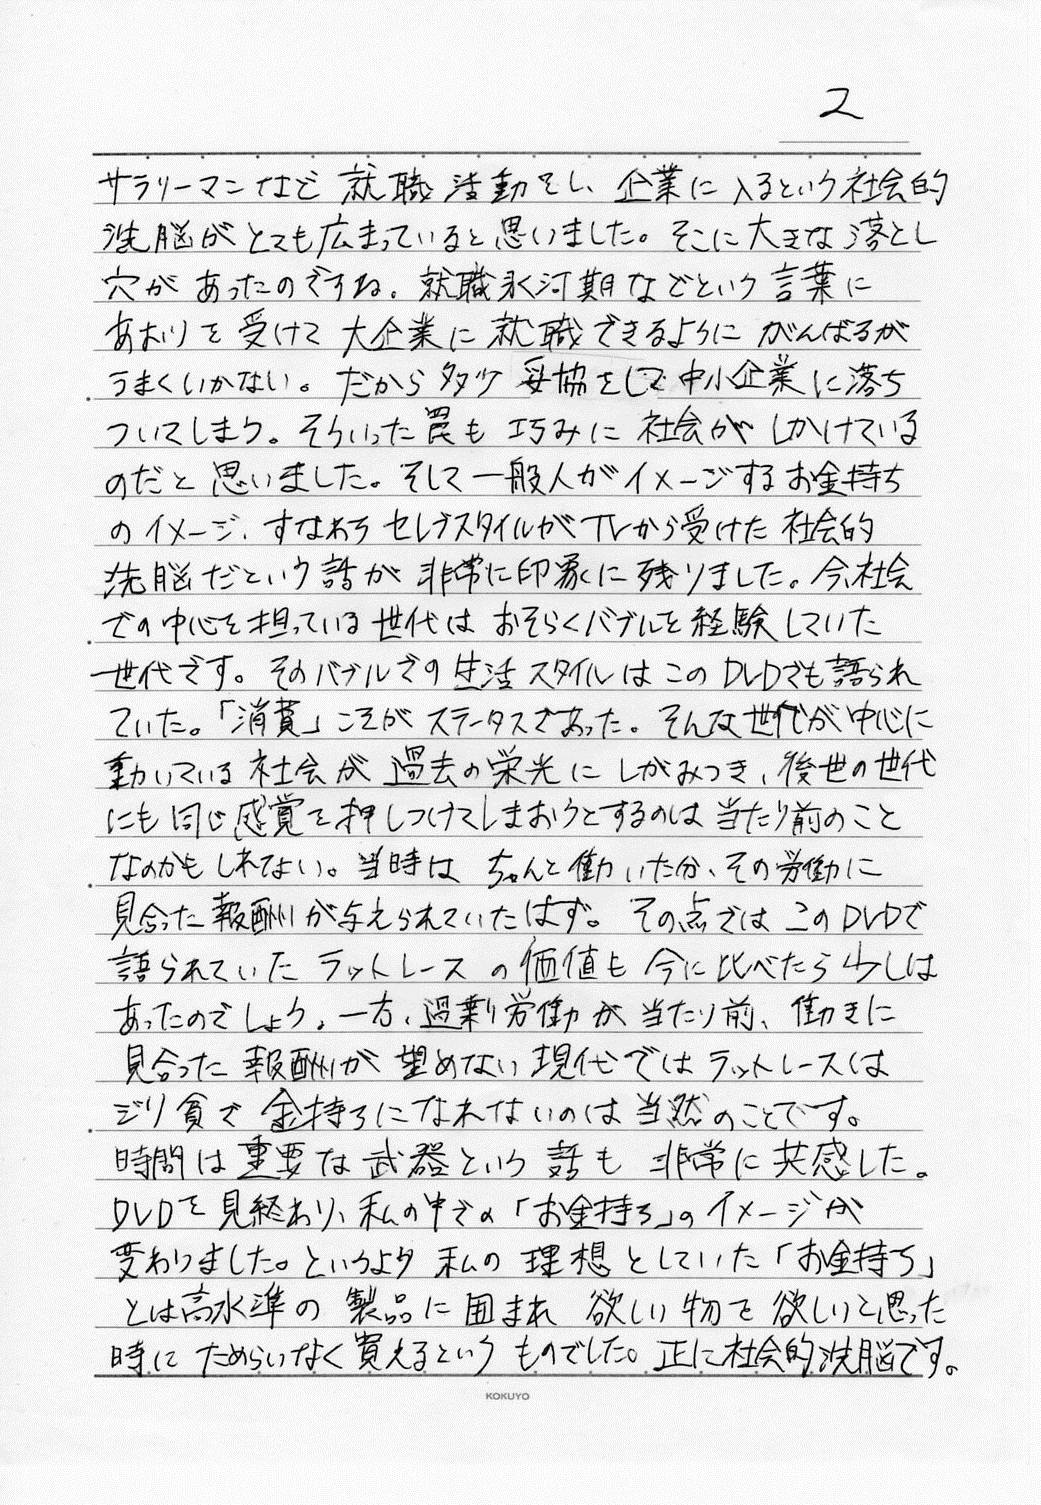 2
サラリーマンなど就職活動をし、企業に入るという社会的
洗脳がとても広まっていると思いました。そこに大きな落とし
穴があったのですね。就職氷河期などという言葉に
あおりを受けて大企業に就職できるようにがんばるが
うまくいかない。だから多少妥協をして中小企業に落ち
ついてしまう。そういった罠も巧みに社会がしかけている
のだと思いました。そして一般人がイメージするお金持ち
のイメージ、すなわちセレブスタイルがTVから受けた社会的
洗脳だという話が非常に印象に残りました。今、社会
での中心を担っている世代はおそらくバブルを経験していた
世代です。そのバブルでの生活スタイルはこのDVDでも語られ
ていた。「消費」こそがステータスであった。そんな世代が中心に
動いている社会が過去の栄光にしがみつき、後世の世代
にも同じ感覚を押しつけてしまおうとするのは当たり前のこと
なのかもしれない。当時はちゃんと働いた分、その労働に
見合った報酬が与えられていたはず。その点ではこのDVDで
語られていたラットレースの価値も今に比べたら少しは
あったのでしょう。一方、過剰労働が当たり前、働きに
見合った報酬が望めない現代ではラットレースは
ジリ貧で金持ちになれないのは当然のことです。
時間は重要な武器という話も非常に共感した。
DVDを見終わり、私の中での「お金持ち」のイメージが
変わりました。というより私の理想としていた「お金持ち」
とは高水準の製品に囲まれ欲しい物を欲しいと思った
時にためらいなく買えるというものでした。正に社会的洗脳です。
KOKUYO